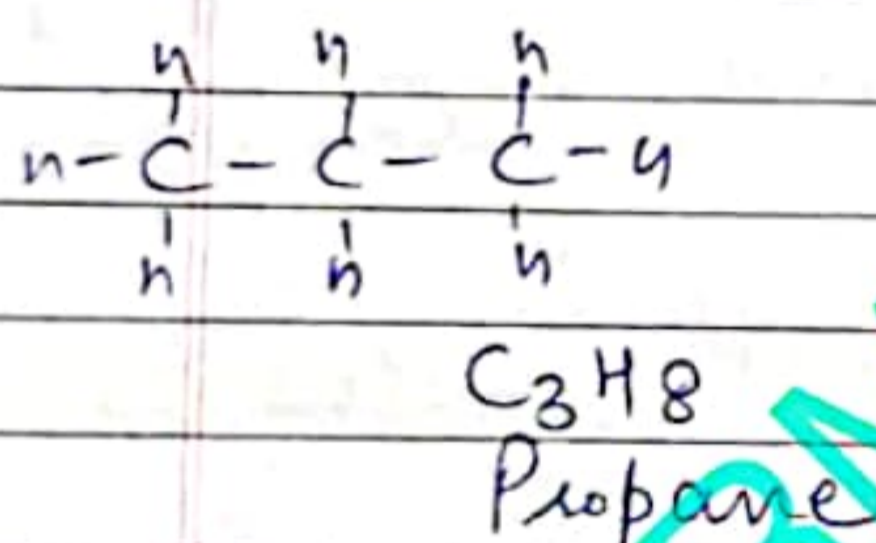 H H H
H-C-C-C-H
H H H
C3H8
Propane